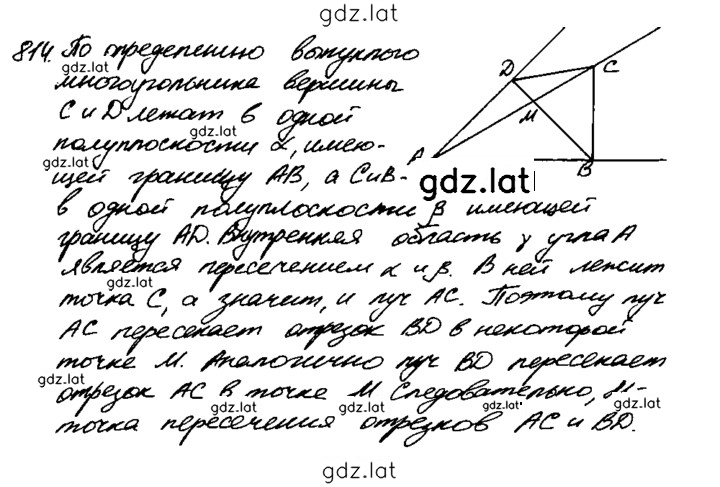 gdz.lat
814. По определению выпуклого
gdz.lat
многоугольника вершины
С и D лежат в одной
gdz.lat
полуплоскости α, имею-
щей границу AB, а С и B-
gdz.lat
в одной полуплоскости β имеющей
границу AD. Внутренняя область γ угла A
является пересечением α и β. В ней лежит
gdz.lat
точка C, а значит, и луч AC. Поэтому луч
AC пересекает отрезок BD в некоторой
точке M. Аналогично луч BD пересекает
gdz.lat
отрезок AC в точке M Следовательно, M-
gdz.lat gdz.lat gdz.lat gdz.lat
точка пересечения отрезков AC и BD.
gdz.lat
D
C
M
A
B